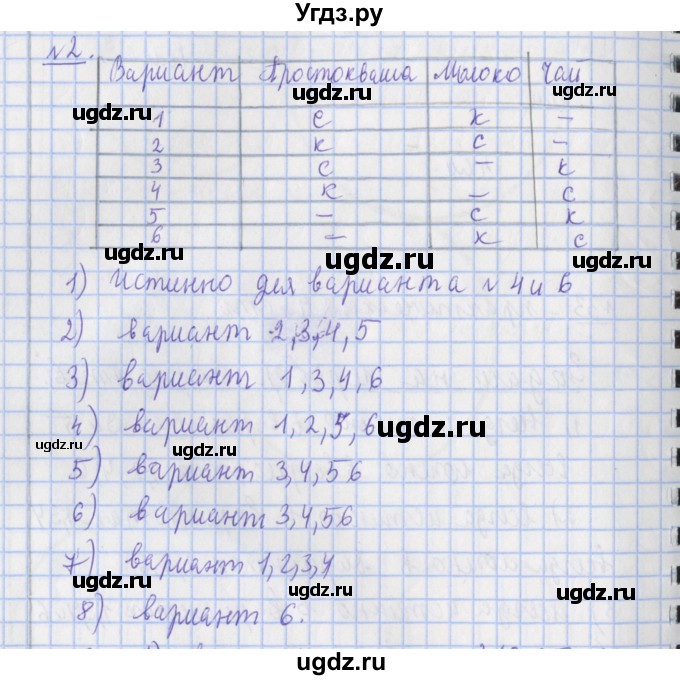 Угдз.ру
№2.
Вариант Простокваша Молоко Чай
ugdz.ru ugdz.ru ugdz.ru
1 С К –
2 К С –
ugdz.ru
3 С – К
4 К – С
5 – С К
6 – К С
ugdz.ru ugdz.ru ugdz.ru
1) Истинно для варианта № 4 и 6
ugdz.ru
2) вариант 2,3,4,5
ugdz.ru ugdz.ru
3) вариант 1,3,4,6
4) вариант 1,2,5,6
ugdz.ru ugdz.ru ugdz.ru
5) вариант 3,4,56
ugdz.ru
6) вариант 3,4,56
ugdz.ru
7) вариант 1,2,3,4
ugdz.ru ugdz.ru
8) вариант 6.
ugdz.ru
ugdz.ru